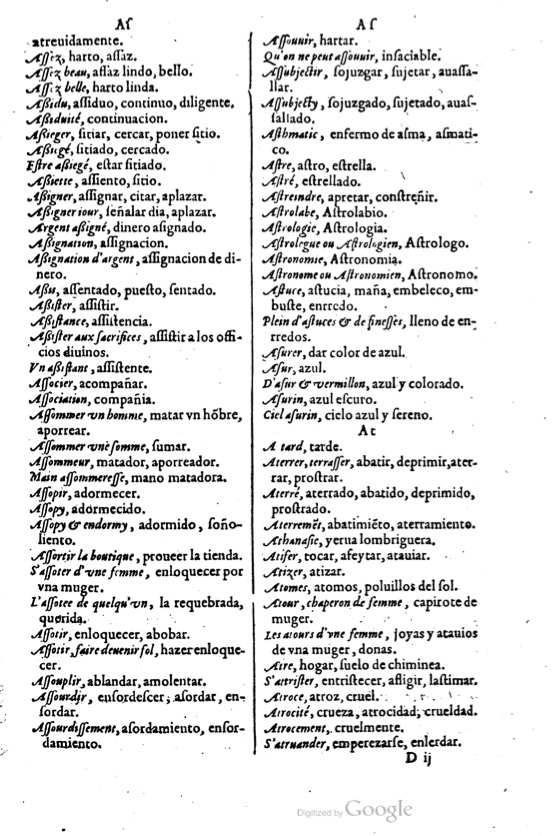 Aſ
atreuidamente.
Aſſez, harto, aſſaz.
Aſſez beau, aſſaz lindo, bello.
Aſſez belle, harto linda.
Aßidu, aſſiduo, continuo, diligente.
Aßiduité, continuacion.
Aßieger, ſitiar, cercar, poner ſitio.
Aßiegé, ſitiado, cercado.
Eſtre aßiegé, eſtar ſitiado.
Aßiette, aſſiento, ſitio.
Aßigner, aſſignar, citar, aplazar.
Aßigner iour, ſeñalar dia, aplazar.
Argent aßigné, dinero aſignado.
Aßignation, aſſignacion.
Aßignation d'argent, aſſignacion de di-
nero.
Aßis, aſſentado, pueſto, ſentado.
Aßiſter, aſſiſtir.
Aßiſtance, aſſiſtencia.
Aßiſter aux ſacrifices, aſſiſtir a los offi-
cios diuinos.
Vn aßiſtant, aſſiſtente.
Aſſocier, acompañar.
Aſſociation, compañia.
Aſſommer vn homme, matar vn hõbre,
aporrear.
Aſſommer vne ſomme, ſumar.
Aſſommeur, matador, aporreador.
Main aſſommereſſe, mano matadora.
Aſſopir, adormecer.
Aſſopy, adormecido.
Aſſopy & endormy, adormido, ſoño-
liento.
Aſſortir la boutique, proueer la tienda.
S'aſſoter d'vne femme, enloquecer por
vna muger.
L'aſſotee de quelqu'vn, la requebrada,
querida.
Aſſotir, enloquecer, abobar.
Aſſotir, faire deuenir fol, hazer enloque-
cer.
Aſſouplir, ablandar, amolentar.
Aſſourdir, enſordeſcer, aſordar, en-
ſordar.
Aſſourdiſſement, aſordamiento, enſor-
damiento.
Aſ
Aſſouuir, hartar.
Qu'on ne peut aſſouuir, inſaciable.
Aſſubjectir, ſojuzgar, ſujetar, auaſſa-
llar.
Aſſubjecty, ſojuzgado, ſujetado, auaſ-
ſallado.
Aſthmatic, enfermo de aſma, aſmati-
co.
Aſtre, aſtro, eſtrella.
Aſtré, eſtrellado.
Aſtreindre, apretar, conſtreñir.
Aſtrolabe, Aſtrolabio.
Aſtrologie, Aſtrologia.
Aſtrologue ou Aſtrologien, Aſtrologo.
Aſtronomie, Aſtronomia.
Aſtronome ou Aſtronomien, Aſtronomo.
Aſtuce, aſtucia, maña, embeleco, em-
buſte, enredo.
Plein d'aſtuces & de fineſſes, lleno de en-
rredos.
Aſurer, dar color de azul.
Aſur, azul.
D'aſur & vermillon, azul y colorado.
Aſurin, azul eſcuro.
Ciel aſurin, cielo azul y ſereno.
At
A tard, tarde.
Aterrer, terraſſer, abatir, deprimir, ater-
rar, proſtrar.
Aterré, aterrado, abatido, deprimido,
proſtrado.
Aterremẽt, abatimiẽto, aterramiento.
Athanaſie, yerua lombriguera.
Atifer, tocar, afeytar, atauiar.
Atizer, atizar.
Atomes, atomos, poluillos del ſol.
Atour, chaperon de femme, capirote de
muger.
Les atours d'vne femme, joyas y atauios
de vna muger, donas.
Atre, hogar, ſuelo de chiminea.
S'atriſter, entriſtecer, afligir, laſtimar.
Atroce, atroz, cruel.
Atrocité, crueza, atrocidad, crueldad.
Atrocement, cruelmente.
S'atruander, emperezarſe, enlerdar.
D ij
Digitized by Google